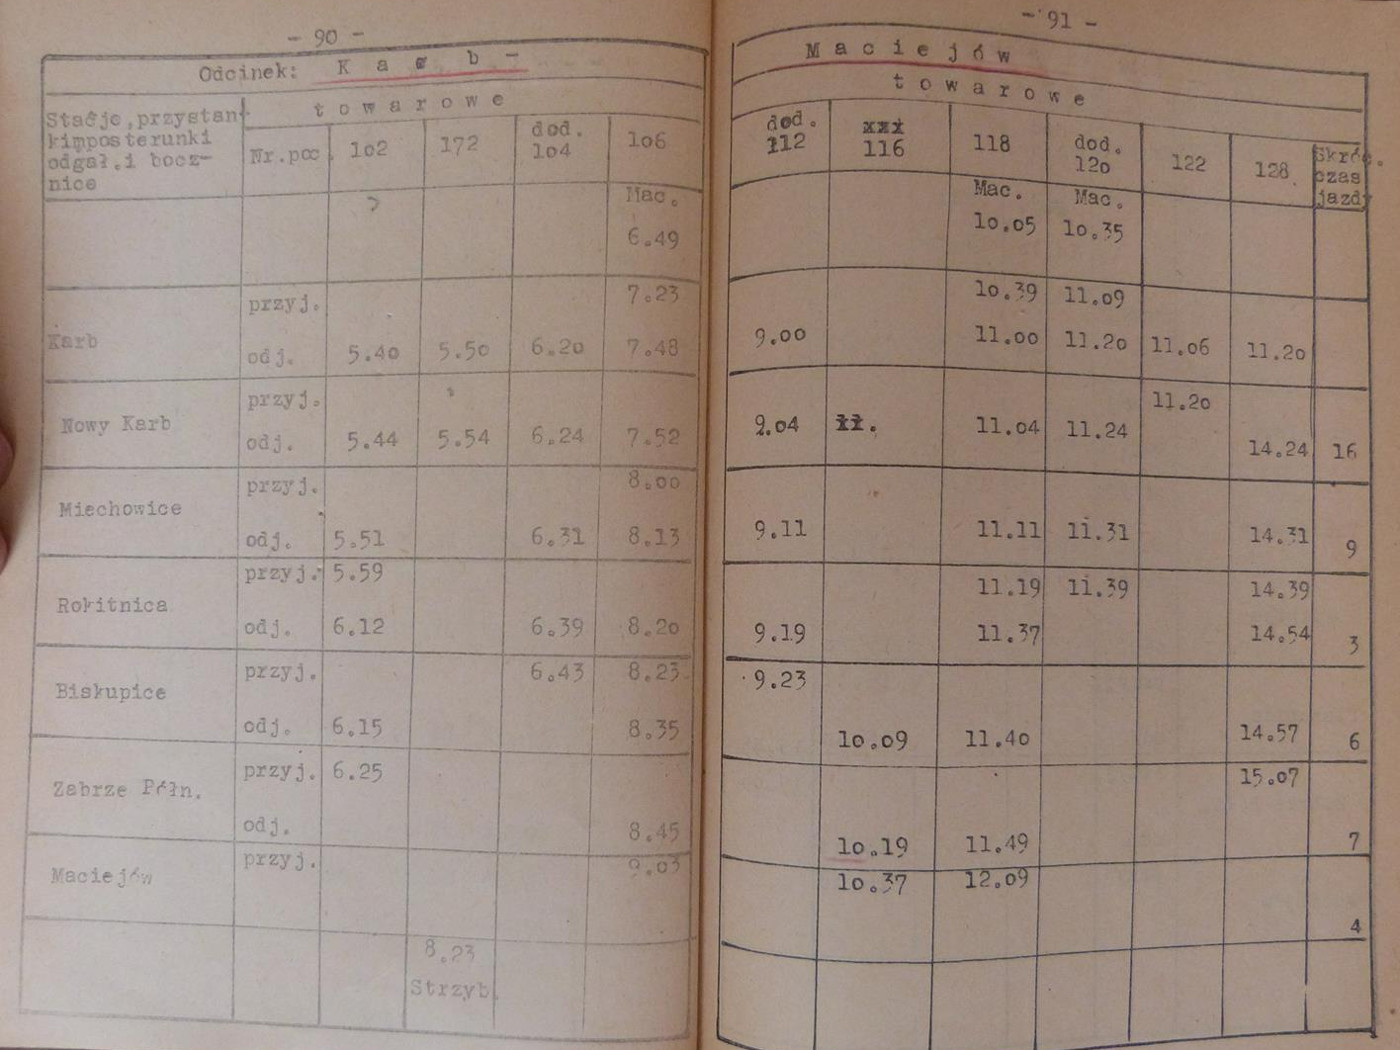 - 90 -
Odcinek: K a r b -
Stacje,przystan-
kimposterunki
odgał.i bocz-
nice
t o w a r o w e
Nr.poc 1o2 172 dod. 1o4 1o6
Mac.
6.49
Karb
przyj. 7.23
odj. 5.4o 5.5o 6.2o 7.48
Nowy Karb
przyj.
odj. 5.44 5.54 6.24 7.52
Miechowice
przyj. 8.oo
odj. 5.51 6.31 8.13
Rokitnica
przyj. 5.59
odj. 6.12 6.39 8.2o
Biskupice
przyj. 6.43 8.23
odj. 6.15 8.35
Zabrze Półn.
przyj. 6.25
odj. 8.45
Maciejów
przyj. 9.o3
8.23
Strzyb.
- 91 -
M a c i e j ó w
t o w a r o w e
dod. 112 xxx 116 118 dod. 12o 122 128 Skróc. czas jazdy
Mac. Mac.
1o.o5 1o.35
1o.39 11.o9
9.oo 11.oo 11.2o 11.o6 11.2o
11.2o
9.o4 11.o4 11.24 14.24 16
9.11 11.11 11.31 14.31 9
11.19 11.39 14.39
9.19 11.37 14.54 3
9.23
1o.o9 11.4o 14.57 6
15.o7
1o.19 11.49 7
1o.37 12.o9
4